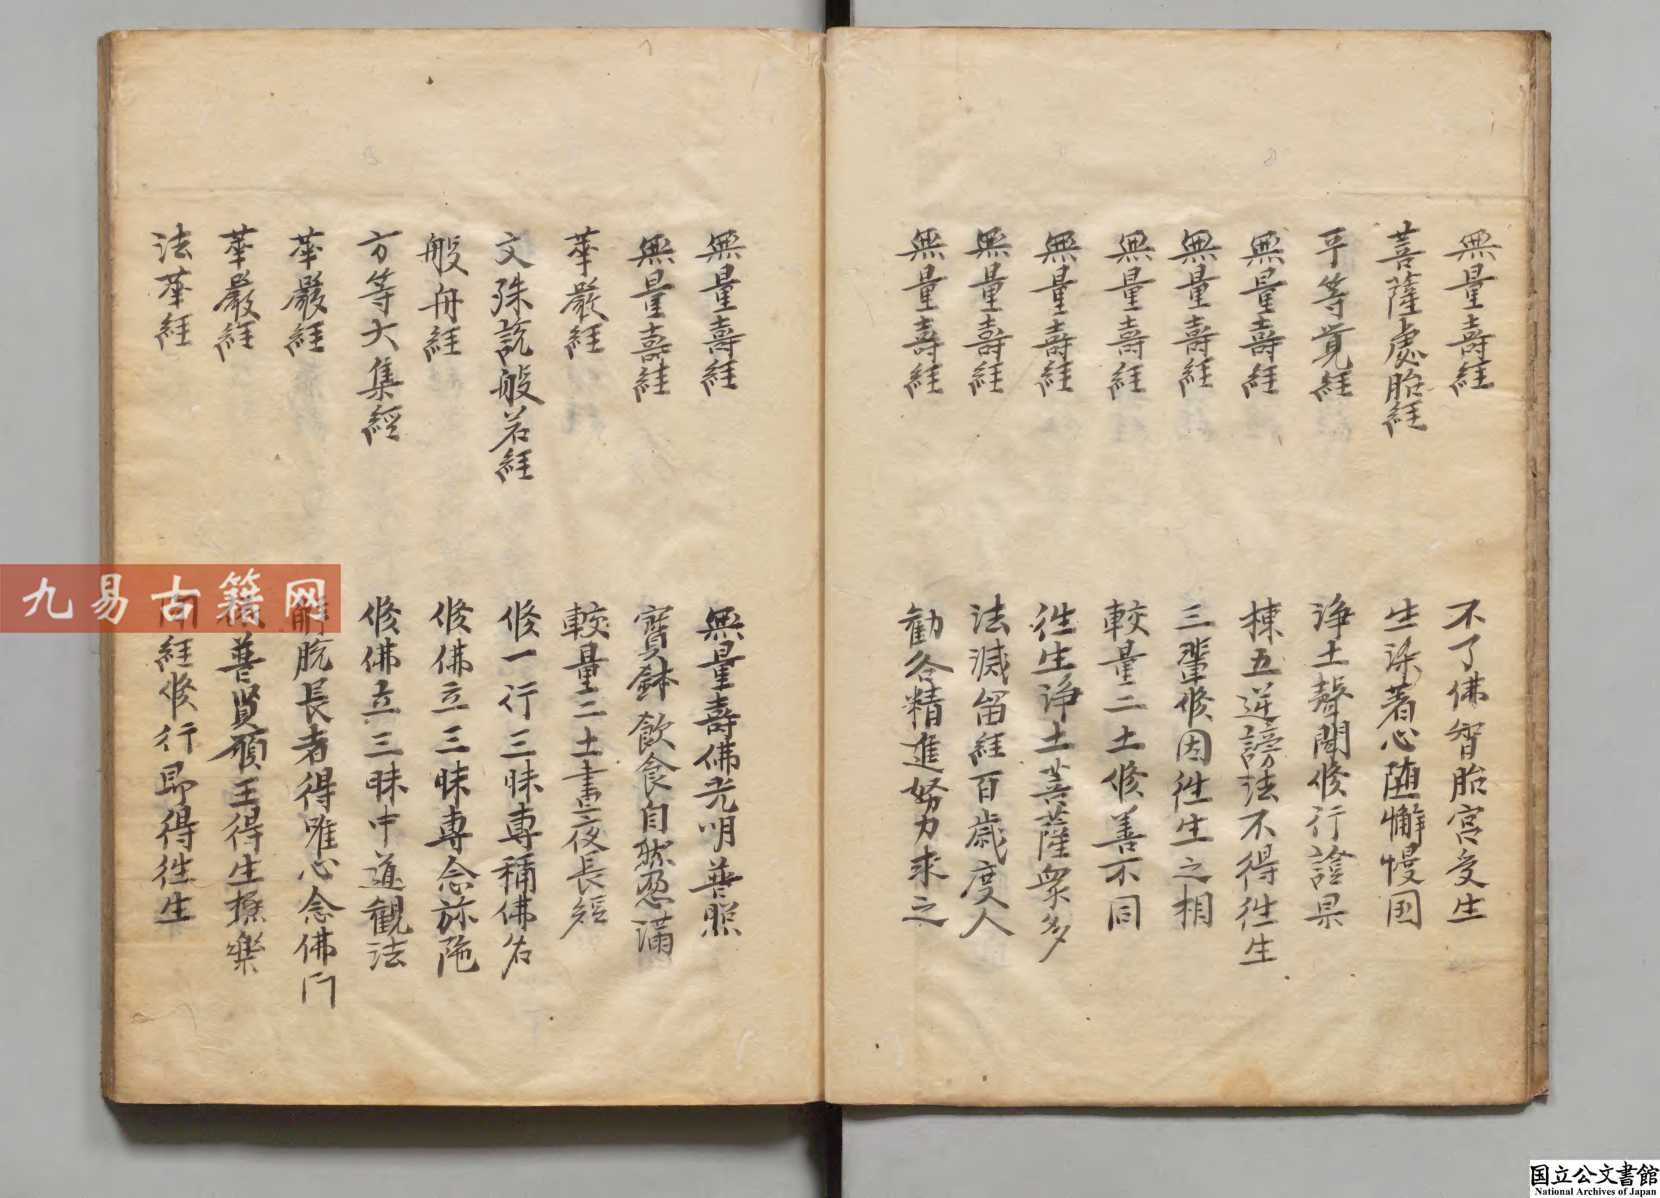 無量壽經 不了佛智胎宮受生
菩薩處胎經 生染著心墮懈慢国
平等覚經 淨土聲聞修行證果
無量壽經 揀五逆謗法不得徃生
無量壽經 三輩修因徃生之相
無量壽經 較量二土修善不同
無量壽經 徃生淨土菩薩衆多
無量壽經 法滅留經百歳度人
無量壽經 勸各精進努力求之
無量壽經 無量壽佛光明普照
無量壽經 寳鉢飲食自然盈滿
華嚴經 較量二土晝夜長短
文殊説般若經 修一行三昧專稱佛名
般舟經 修佛立三昧專念弥陁
方等大集經 修佛立三昧中道觀法
華嚴經 解脱長者得唯心念佛門
華嚴經 普賢願王得生極樂
法華經 聞經修行即得徃生
九易古籍网
国立公文書館
National Archives of Japan